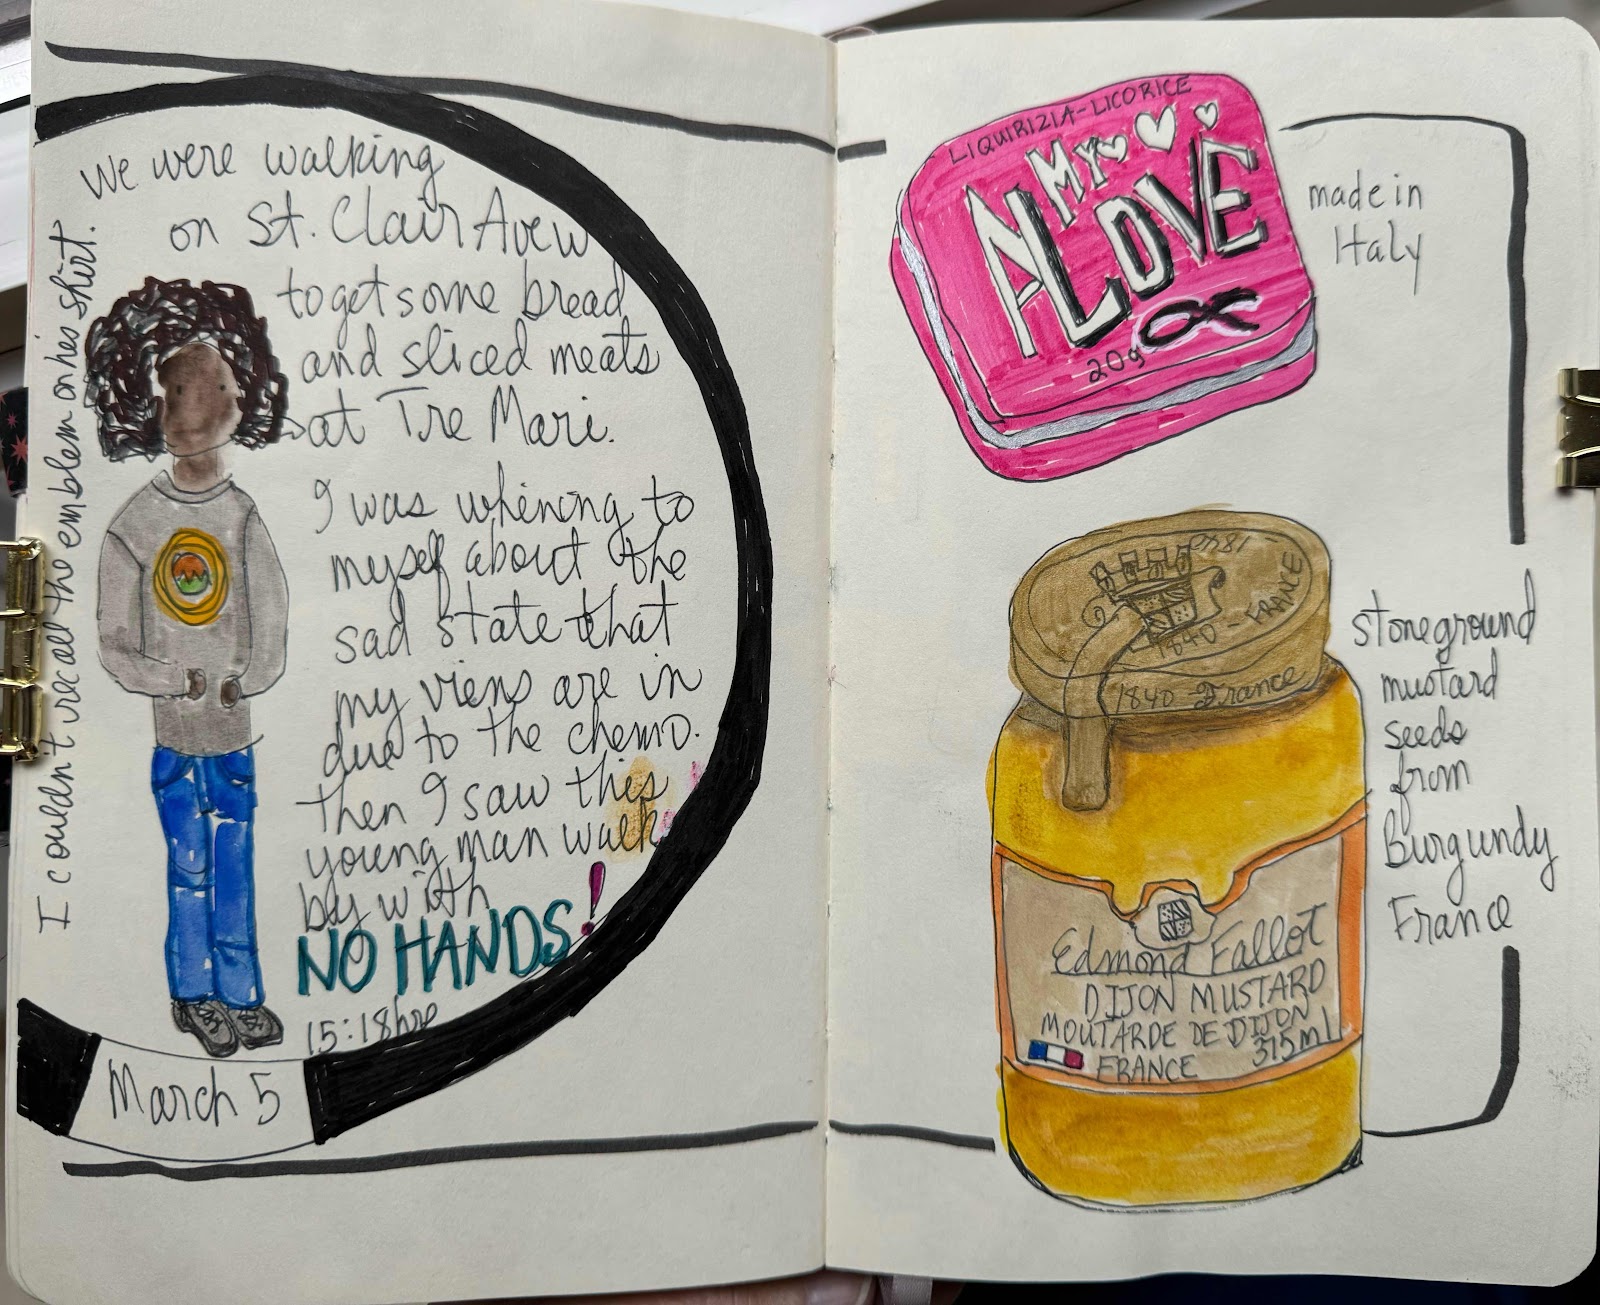 We were walking
on St. Clair Ave W
to get some bread
and sliced meats
at Tre Mari.
I was whining to
myself about the
sad state that
my viens are in
due to the chemo.
Then I saw this
young man walk
by with
NO HANDS!
15:18hre
March 5
I couldn't recall the emblem on his shirt.
LIQUIRIZIA-LICORICE
MY
LOVE
20g
made in
Italy
1840 - FRANCE
1840 - France
stoneground
mustard
seeds
from
Burgundy
France
Edmond Fallot
DIJON MUSTARD
MOUTARDE DE DIJON
FRANCE 315ml